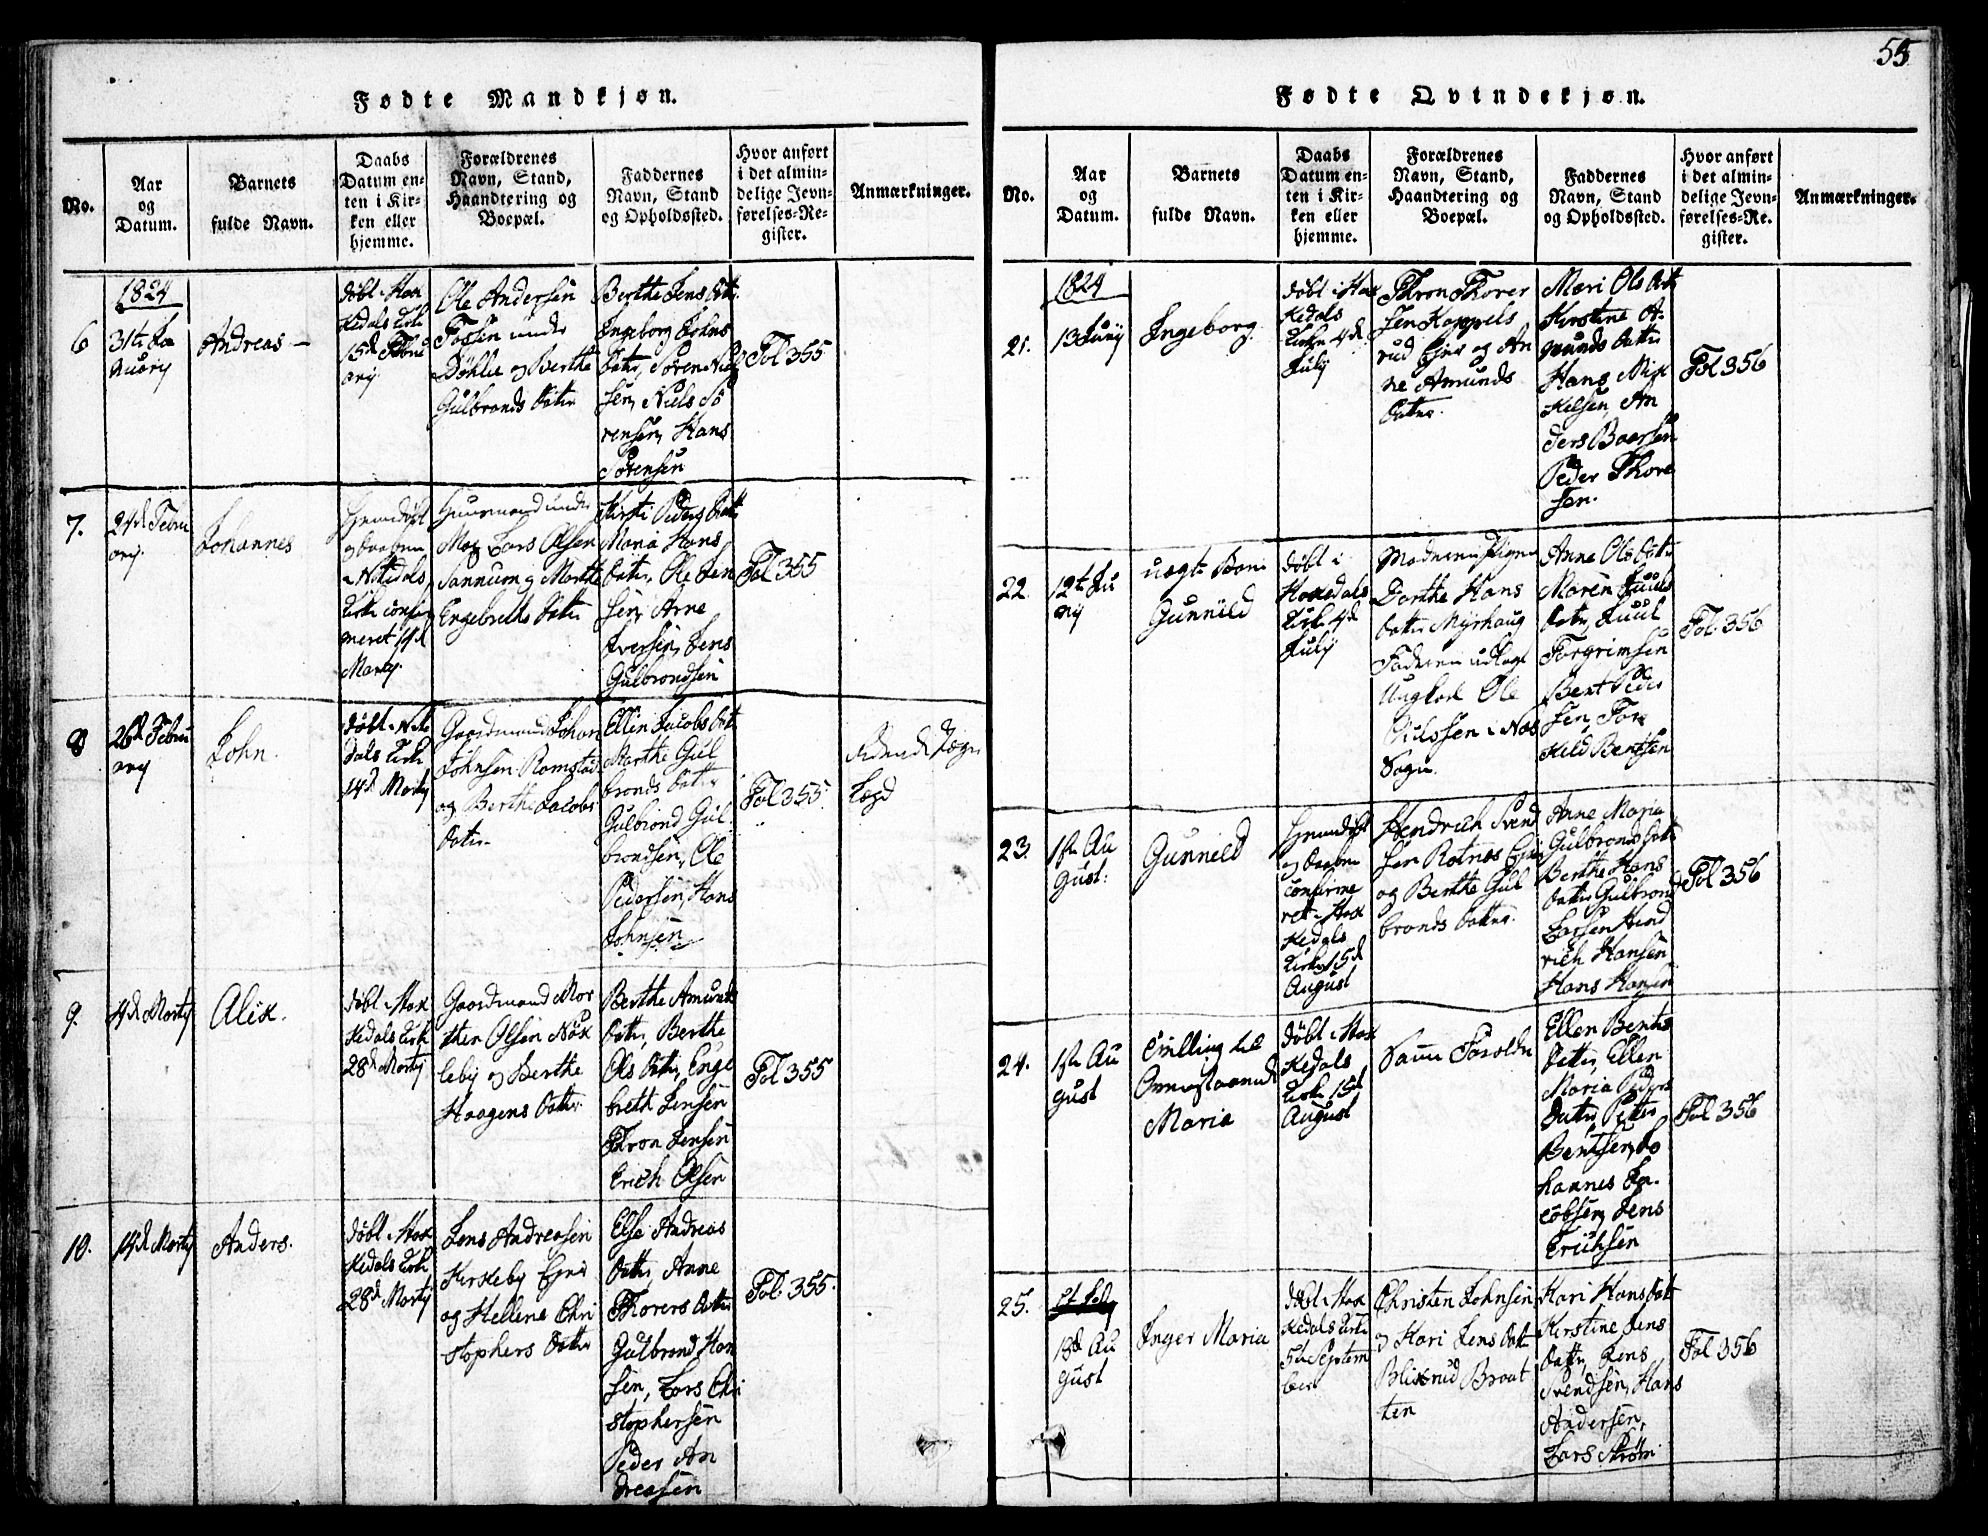 55
Fødte Mandkjøn.
No.
Aar
og
Datum.
Barnets
fulde Navn.
Daabs
Datum en-
ten i Kir-
ken eller
hjemme.
Forældrenes
Navn, Stand,
Haandtering og
Boepæl.
Faddernes
Navn, Stand
og Opholdssted.
Hvor anført
i det almin-
delige Jevn-
førelses-Re-
gister.
Anmærkninger.
6
1824
31te Ja
nuary
Andreas
døbt i Hak
kedals Kirk
15d Febru
ary
Ole Andersen
Fossen under
Døhlie og Berthe
Gulbrands Datter
Berthe Jens Datt
Ingeborg Johns
Datter, Søren Niel
sen, Niels Sø
rensen, Hans
Sørensen
Fol 355
7.
24d Febru
ary.
Johannes
Hjemdøbt
og Daaben
i Nitedals
Kirke confir
meret 14d
Marty.
Huusmand under
Mo, Lars Olsen
Sannum og Marthe
Engebreths Datter
Kirsti Peders Datt
Maria Hans
Datter, Ole Jen
sen, Arne
Iversen, Jens
Gulbrandsen
Fol 355
8
26d Febru
ary
John.
døbt i Nite
dals Kirke
14d Marty
Gaardmand Johan
Johnsen Ramstad
og Berthe Jacobs
Datter
Ellin Jacobs Datt
Marthe Gul
brands Datter
Gulbrand Gul
brandsen, Ole
Pedersen, Hans
Johnsen
Fol 355.
Lægd
9.
4d Marty
Alix.
døbt i Hak
kedals Kirk
28d Marty
Gaardmand Mor
then Olsen Nøk
leby og Berthe
Haagens Datter
Berthe Amunds
Datter, Berthe
Ols Datter, Enge
breth Jensen
Thron Jensen
Erich Olsen
Fol 355
10.
14d Marty
Anders.
døbt i Hak
kedals Kirk
28d Marty
Jens Andreasen
Kirkeby Eyer
og Hellene Chri
stophers Datter
Else Andreas
Datter, Anne
Thorers Datter
Gulbrand Han
sen, Lars Chri
stophersen
Peder An
dreasen
Fol. 355.
Fødte Qvindekjøn.
No.
Aar
og
Datum.
Barnets
fulde Navn.
Daabs
Datum en-
ten i Kir-
ken eller
hjemme.
Forældrenes
Navn, Stand,
Haandtering og
Boepæl.
Faddernes
Navn, Stand
og Opholdssted.
Hvor anført
i det almin-
delige Jevn-
førelses-Re-
gister.
Anmærkninger.
21.
1824
13 Juny
Ingeborg.
døbt i Hak
kedals
Kirke 4d
July
Thron Thorer
sen Kappels
rud Eyer og An
ne Amunds
Datter.
Mari Ols Datt
Kirstine A-
munds Datter
Hans Mik
kelsen, An
ders Baarsen
Peder Thore
sen.
Fol 356
22.
12te Ju
ny
uægte Barn
Gunnild
døbt i
Hakkedals
Kirke 4d
July
Moderen Pigen
Dorthe Hans
Datter Myrhaug
Faderen udlagt
Ungkarl Ole
Nilssen i Næs
Sogn.
Anne Ols Datter
Maren Juuls
Datter, Juul
Torgrimsen
Bent Peder
sen, Tor
kild Bentsen
Fol. 356
23.
1ste Au
gust:
Gunnild
Hjemdøbt
og Daaben
confirme
ret i Hak
kedals
Kirke 15d
August
Hendrich Svend
sen Rotnæs Eyer
og Berthe Gul
brands Datter.
Anne Maria
Gulbrands Datt
Berthe Hans
Datter Gulbrand
Larsen Hend
rich Hansen
Hans Hansen
Fol 356
24.
1ste Au
gust
Tvilling til
Ovenstaaende
Maria
døbt i Hak
kedals
Kirke 15d
August
Samme Forældre
Ellen Bents
Datter, Ellen
Maria Peders
Datter, Petter
Bentsen, Jo
hannes Ja-
cobsen, Jens
Erichsen
Fol 356
25.
18d Au
gust
Inger Maria
døbt i Hak
kedals Kirke
5te Septem
ber
Christen Johnsen
og Kari Jens Datt
Blixrud Braat
ten
Kari Hans Datt
Kirstine Jens
Datter, Jens
Svendsen, Hans
Andersen,
Lars Strøm.
Fol 356